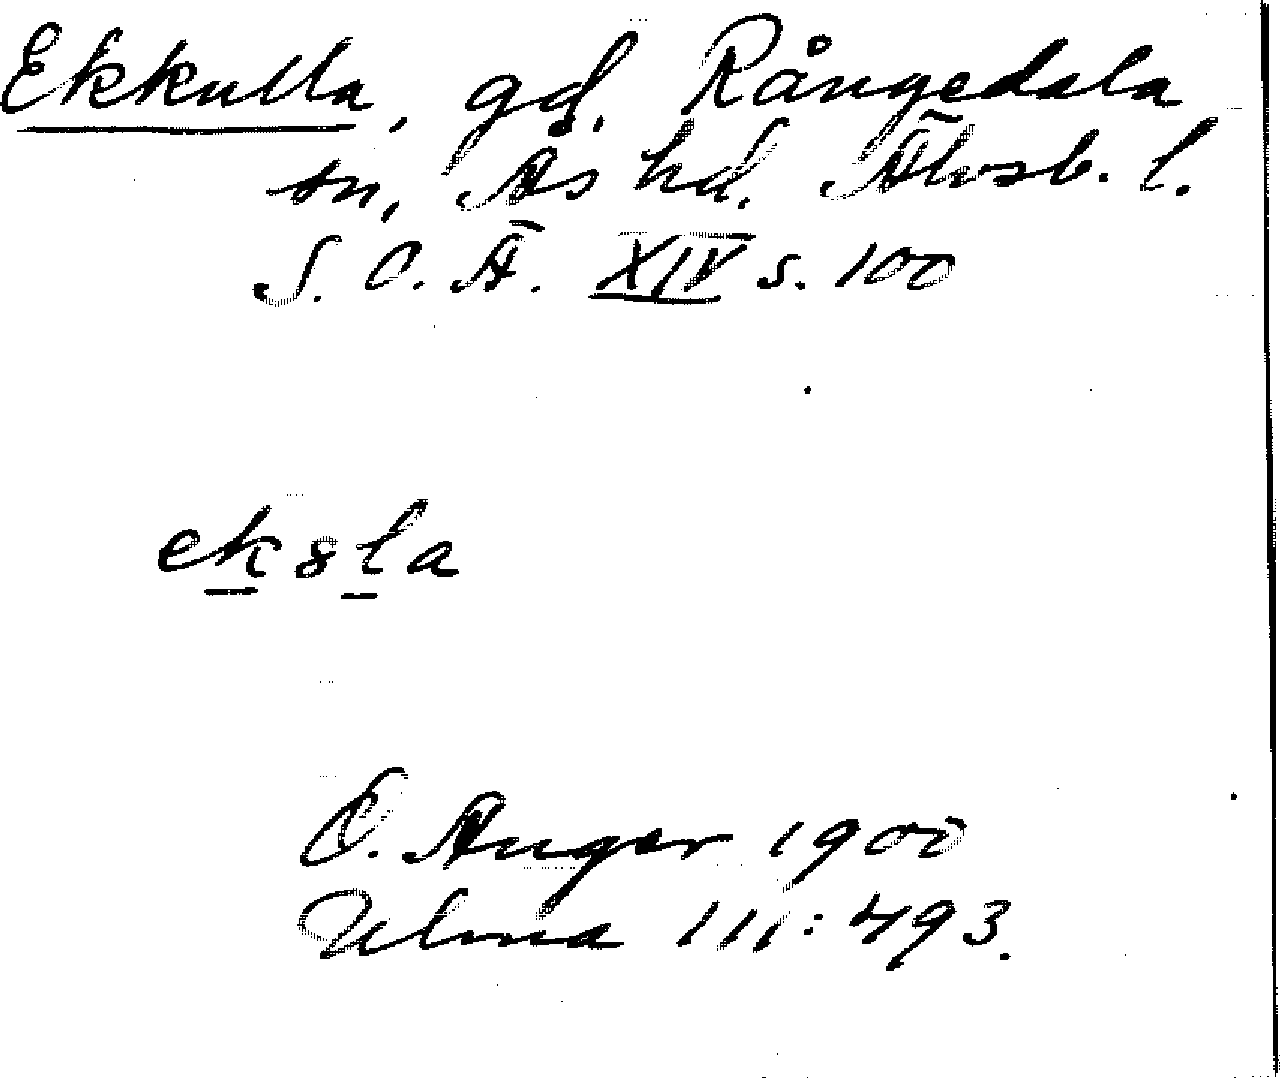 Ekkulla, gd. Rångedala
sn, Ås hd. Älvsb. l.
S. O. Ä. XIV s. 100
eksla
O. Anger 1900
Ulma 111:493.